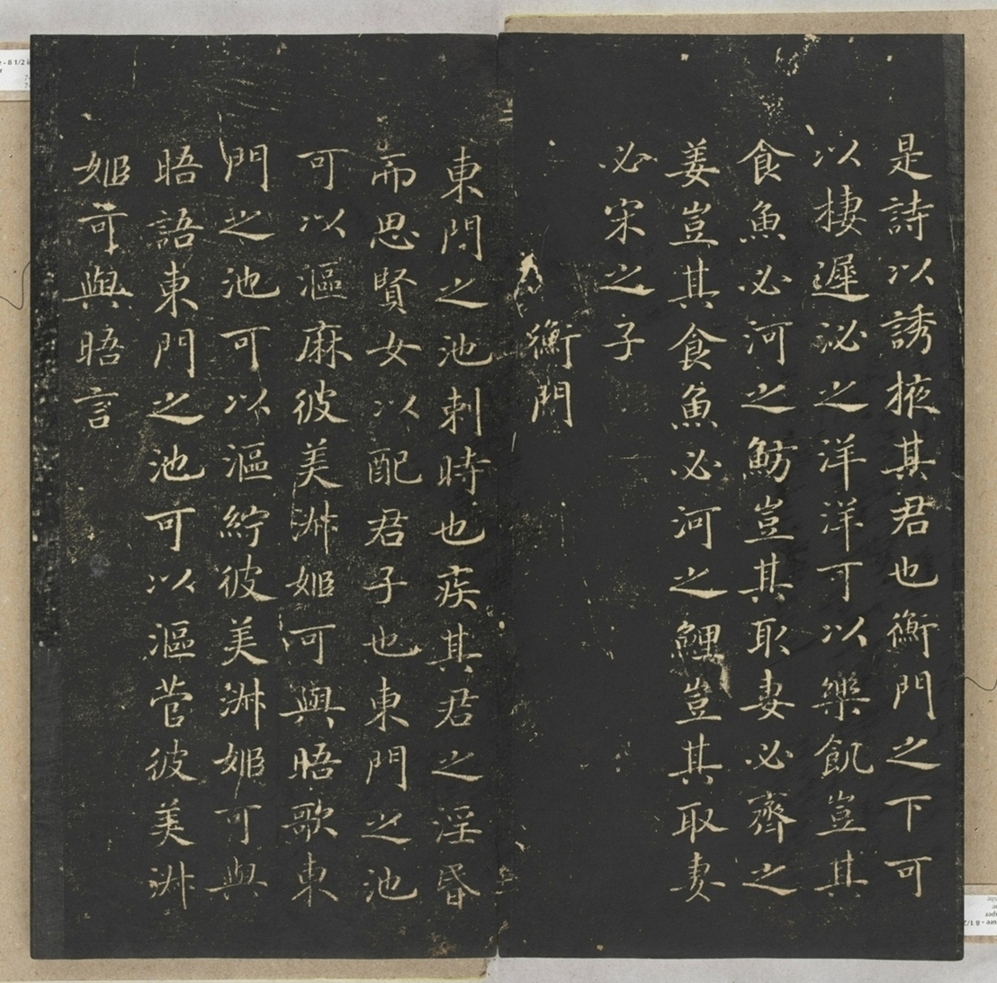 是詩以誘掖其君也衡門之下可
以棲遲泌之洋洋可以樂飢豈其
食魚必河之魴豈其取妻必齊之
姜豈其食魚必河之鯉豈其取妻
必宋之子
衡門
東門之池刺時也疾其君之淫昏
而思賢女以配君子也東門之池
可以漚麻彼美淑姬可與晤歌東
門之池可以漚紵彼美淑姬可與
晤語東門之池可以漚菅彼美淑
姬可與晤言